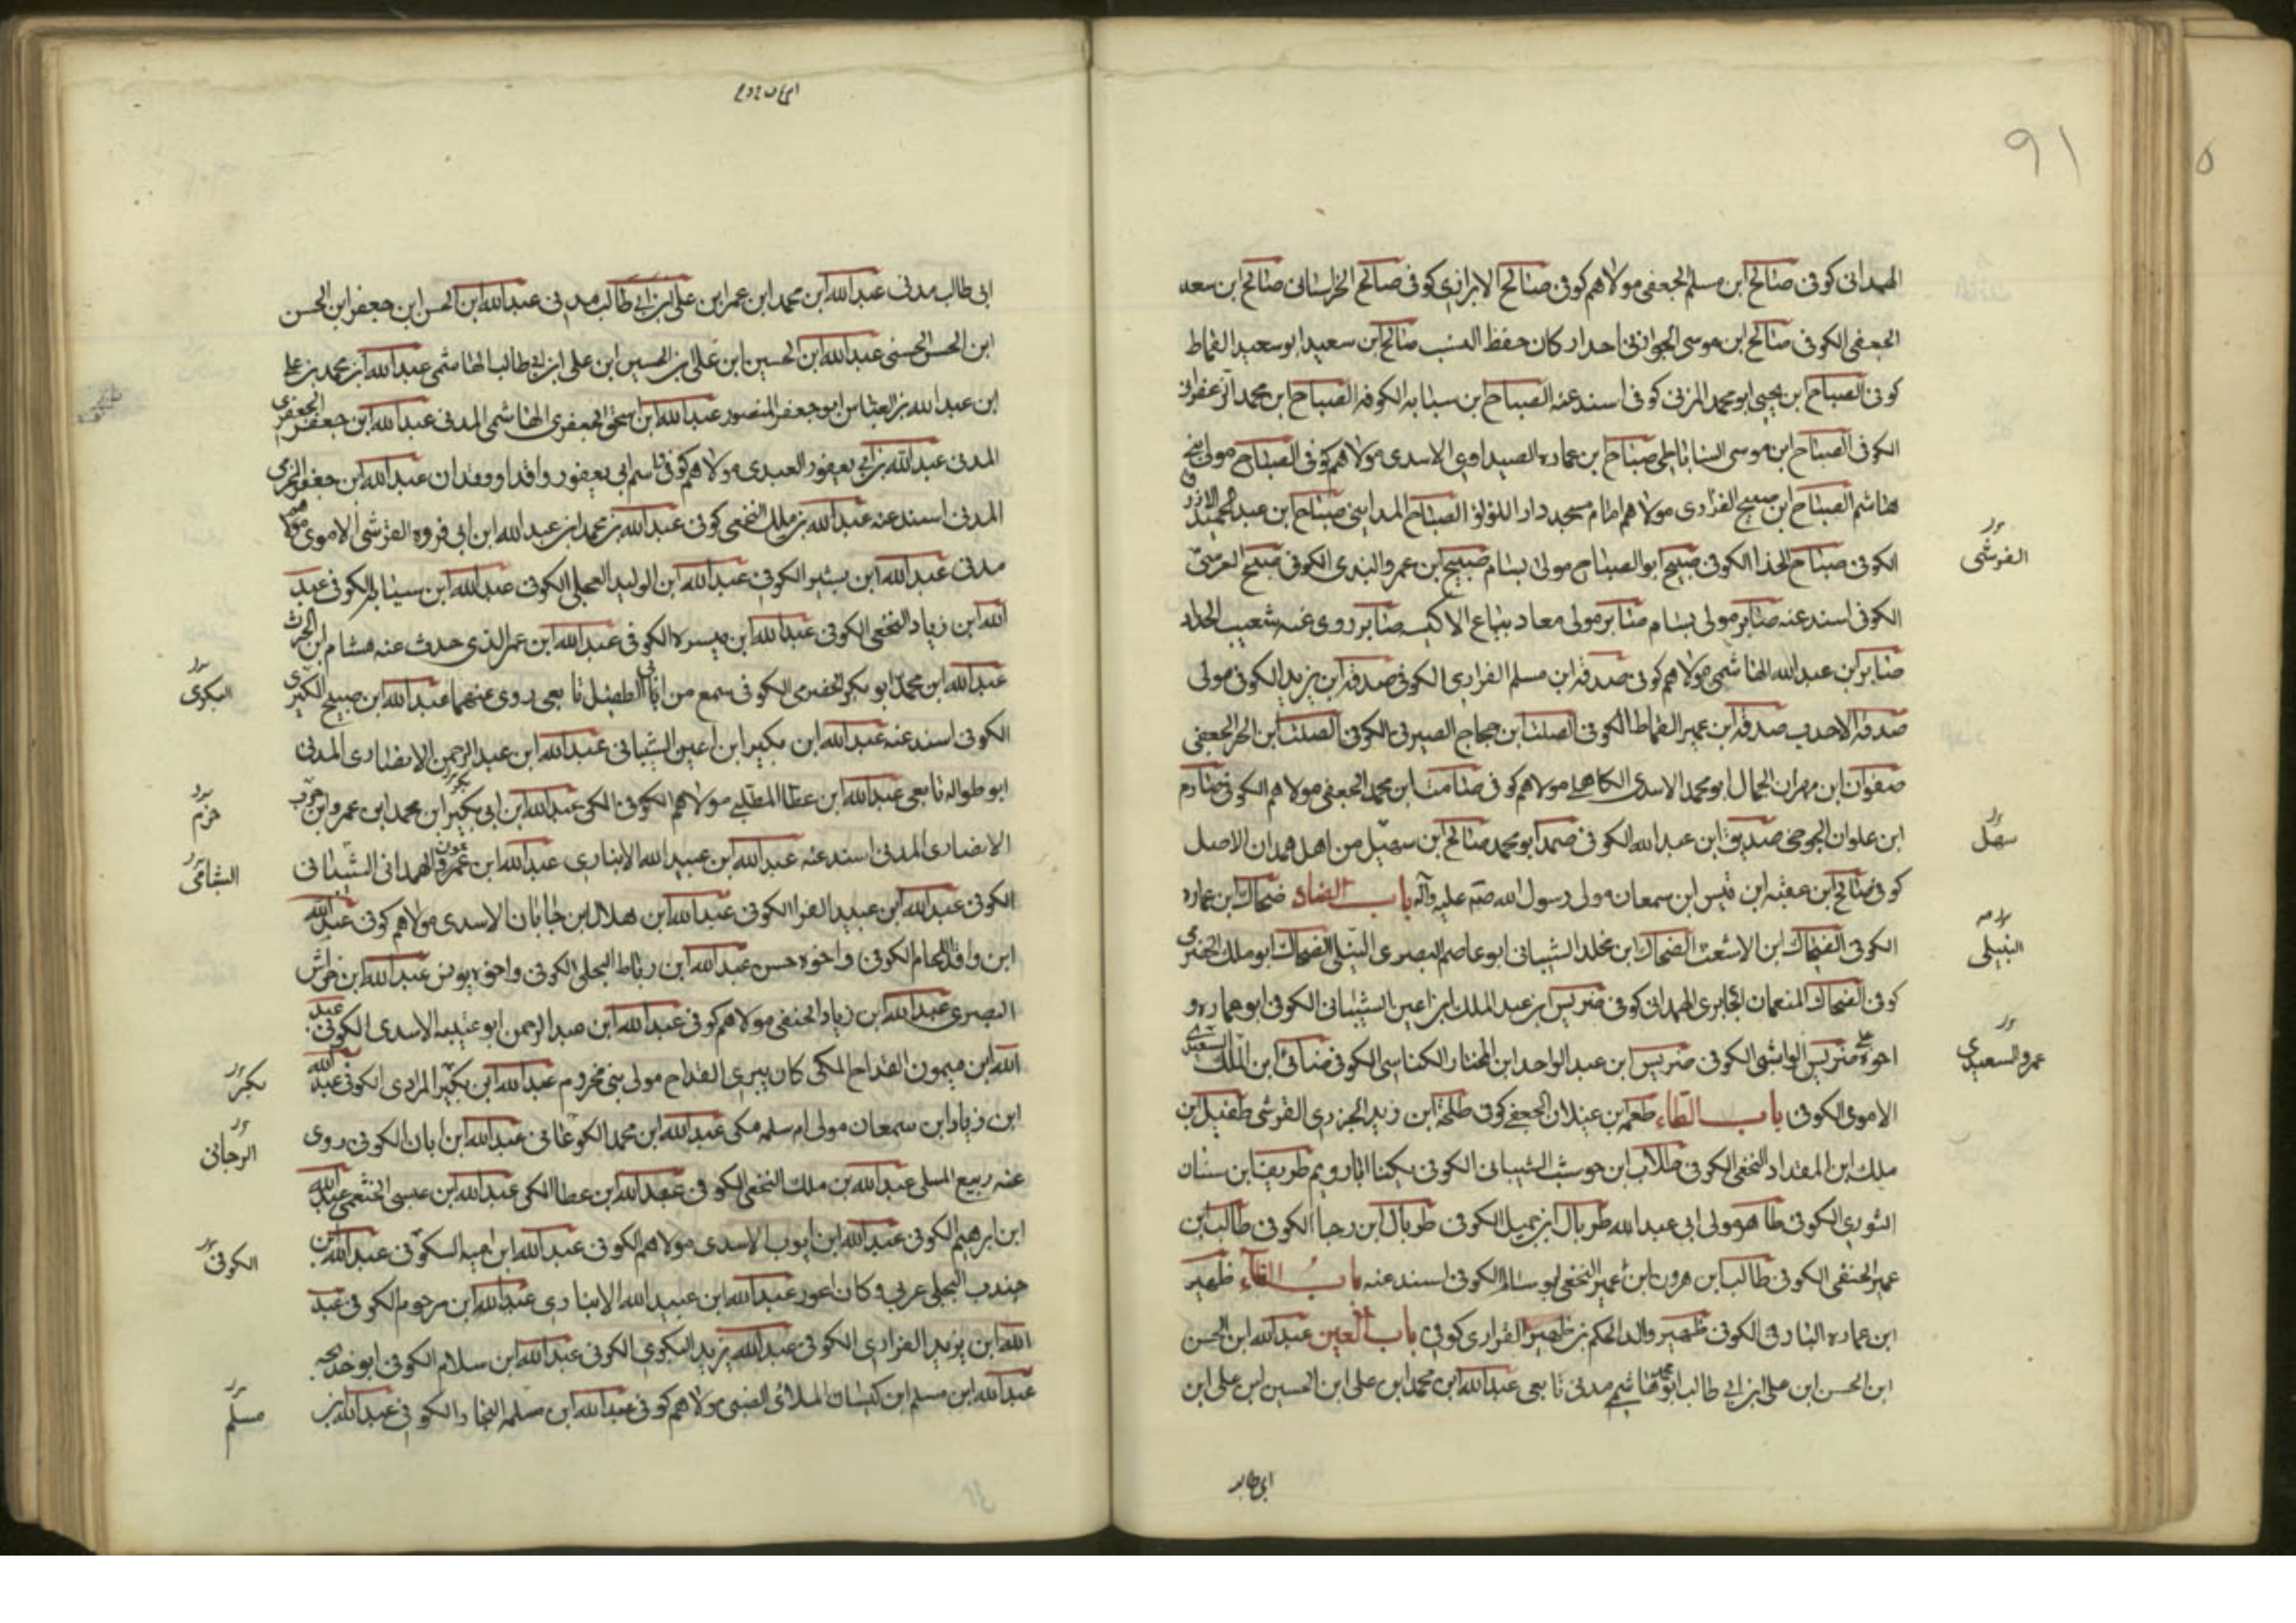 ٩١
الهمدانى كوفى صالح ابن مسلم الجعفى مولاهم كوفى صالح الابزارى كوفى صالح الخراسانى صالح ابن سعد
الجعفى الكوفى صالح ابن موسى الجوانى احدار كان حفظ النسب صالح ابن سعيد ابو سعيد القماط
كوفى الصباح ابن يحيى ابو محمد المزنى كوفى اسند عنه الصباح بن سبابه الكوفه الصباح ابن محمد الزعفرانى
الكوفى الصباح ابن موسى الساباطى صباح بن عماره الصيداوى الاسدى مولاهم كوفى الصباح مولى بنى
هاشم الصباح ابن صبيح الفزارى مولاهم امام مسجد دار اللؤلؤ الصباح المداينى صباح ابن عبد الحميد الازرق
الكوفى صباح الحذا الكوفى صبيح ابو الصباح مولى بسام صبيح ابن عمرو النهدى الكوفى صبيح العرسى
القرشى
الكوفى اسند عنه صابر مولى بسام صابر مولى معاد بياع الاكسيه صابر روى عنه شعيب الحداد
صابر ابن عبد الله الهاشمى مولاهم كوفى صدقة ابن مسلم الفزارى الكوفى صدقة ابن يزيد الكوفى مولى
صدقة الاحدب صدقة ابن عمير القماط الكوفى الصلت ابن حجاج الصيرفى الكوفى الصلت ابن الحر الجعفى
صفوان ابن مهران الجمال ابو محمد الاسدى الكاهلى مولاهم كوفى صامت ابن محمد الجعفى مولاهم الكوفى صارم
ابن علوان الجوخى صديق ابن عبد الله الكوفى صمد ابو محمد صالح ابن سهيل من اهل همدان الاصل
سهل
كوفى صالح ابن عقبه ابن قيس ابن سمعان مولى رسول الله صلى عليه وآله باب الضاد ضحاك ابن عماره
الكوفى الضحاك ابن الاشعث الضحاك ابن مخلد الشيبانى ابو عاصم البصرى النبيلى الضحاك ابو ملك الحضرمى
النبيلى
كوفى الضحاك المنعمان الجابرى الهمدانى كوفى ضريس ابن عبد الملك ابن اعين الشيبانى الكوفى ابو عماره و
اخوه على ضريس الوابشى الكوفى ضريس ابن عبد الواحد ابن المختار الكناسى الكوفى ضنائى ابن الملك السعيدى
عمرو السعيدى
الاموى الكوفى باب الطاء طعمه ابن غيلان الجعفى كوفى طلحة ابن زيد الجزرى القرشى طفيل ابن
ملك ابن المقداد النخعى الكوفى طلاب ابن حوشب الشيبانى الكوفى يكنا ابا رويم طريف ابن سنان
الثورى الكوفى طاهر مولى ابى عبد الله طربال ابن جميل الكوفى طربال ابن رجا الكوفى طالب ابن
عمير الحنفى الكوفى طالب ابن هرون ابن عمير النخعى ابو سالم الكوفى اسند عنه باب الظاء ظهير
ابن عماره البارقى الكوفى ظهير والد الحكم بن ظهير الفزارى كوفى باب العين عبد الله ابن الحسن
ابن الحسن ابن على ابن ابى طالب ابو محمد هاشمى مدنى تابعى عبد الله ابن محمد ابن على ابن الحسين ابن على ابن
ابى طالب
ابى طالب مدنى عبد الله ابن محمد ابن عمر ابن على ابن ابى طالب مدنى عبد الله ابن الحسن ابن جعفر ابن الحسن
ابن الحسن الحسنى عبد الله ابن الحسين ابن على ابن الحسين ابن على ابن ابى طالب الهاشمى عبد الله ابن محمد بن على
ابن عبد الله بن العباس ابو جعفر المنصور عبد الله ابن اسحق الجعفرى الهاشمى المدنى عبد الله ابن جعفر الجعفرى
المدنى عبد الله بن ابى يعفور العبدى مولاهم كوفى اسم ابى يعفور واقد او وقدان عبد الله ابن جعفر المخرمى
المدنى اسند عنه عبد الله بن ملك النخعى كوفى عبد الله بن محمد ابن عبد الله ابن ابى فروه القرشى الاموى مولاهم
مدنى عبد الله ابن بشير الكوفى عبد الله ابن الوليد العجلى الكوفى عبد الله ابن سيابه الكوفى عبد
الله ابن زياد النخعى الكوفى عبد الله ابن ميسره الكوفى عبد الله ابن عمر الذى حدث عنه هشام ابن الحرث
عبد الله ابن محمد ابو بكر الحضرمى الكوفى سمع من ابى الطفيل تابعى روى عنهما عبد الله ابن صبيح البكرى
البكرى
الكوفى اسند عنه عبد الله ابن بكير ابن اعين الشيبانى عبد الله ابن عبد الرحمن الانصارى المدنى
ابو طواله تابعى عبد الله ابن عطا المطلبى مولاهم الكوفى المكى عبد الله ابن ابى بكير ابن محمد ابن عمرو ابن حرب
حزم
الانصارى المدنى اسند عنه عبد الله ابن عبيد الله الانبارى عبد الله ابن عمرو الهمدانى الشبانى
الشبامى
الكوفى عبد الله ابن عبيد الفرا الكوفى عبد الله ابن هلال ابن جابان الاسدى مولاهم كوفى عبد الله
ابن واقد اللحام الكوفى واخوه حسن عبد الله ابن رباط البجلى الكوفى واخوه يونس عبد الله ابن خراش
البصرى عبد الله ابن زياد الحنفى مولاهم كوفى عبد الله ابن عبد الرحمن ابو عتيبه الاسدى الكوفى عبد
الله ابن ميمون القداح المكى كان يبرى القداح مولى بنى مخزوم عبد الله ابن بكير المرادى الكوفى عبد الله
بكر
ابن زياد ابن سمعان مولى ام سلمه مكى عبد الله ابن محمد الكوغانى عبد الله ابن ابان الكوفى روى
الرجانى
عنه ربيع المسلى عبد الله بن ملك النخعى الكوفى عبد الله ابن عطا المكى عبد الله ابن عيسى الخثعمى عبد الله
ابن ابرهيم الكوفى عبد الله ابن ايوب الاسدى مولاهم الكوفى عبد الله ابن اميه السكونى عبد الله ابن
الكوفى
جندب البجلى عربى وكان اعور عبد الله ابن عبيد الله الانبارى عبد الله ابن مرحوم الكوفى عبد
الله ابن يزيد الفزارى الكوفى عبد الله يزيد البكرى الكوفى عبد الله ابن سلام الكوفى ابو خديجه
عبد الله ابن مسلم ابن كيسان الملائى الضبى مولاهم كوفى عبد الله ابن سلمه النجار الكوفى عبد الله بن
مسلم